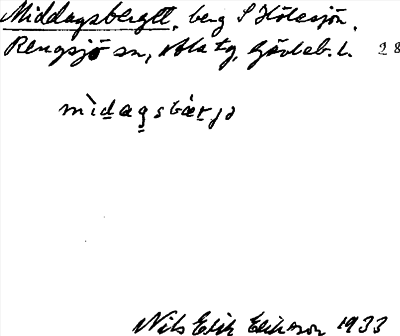 Middagsberget, berg S Hölesjön,
Rengsjö sn, Ala tg, Gävleb. l. 28
mìdagsbærjə
Nils Erik Eliksson 1933